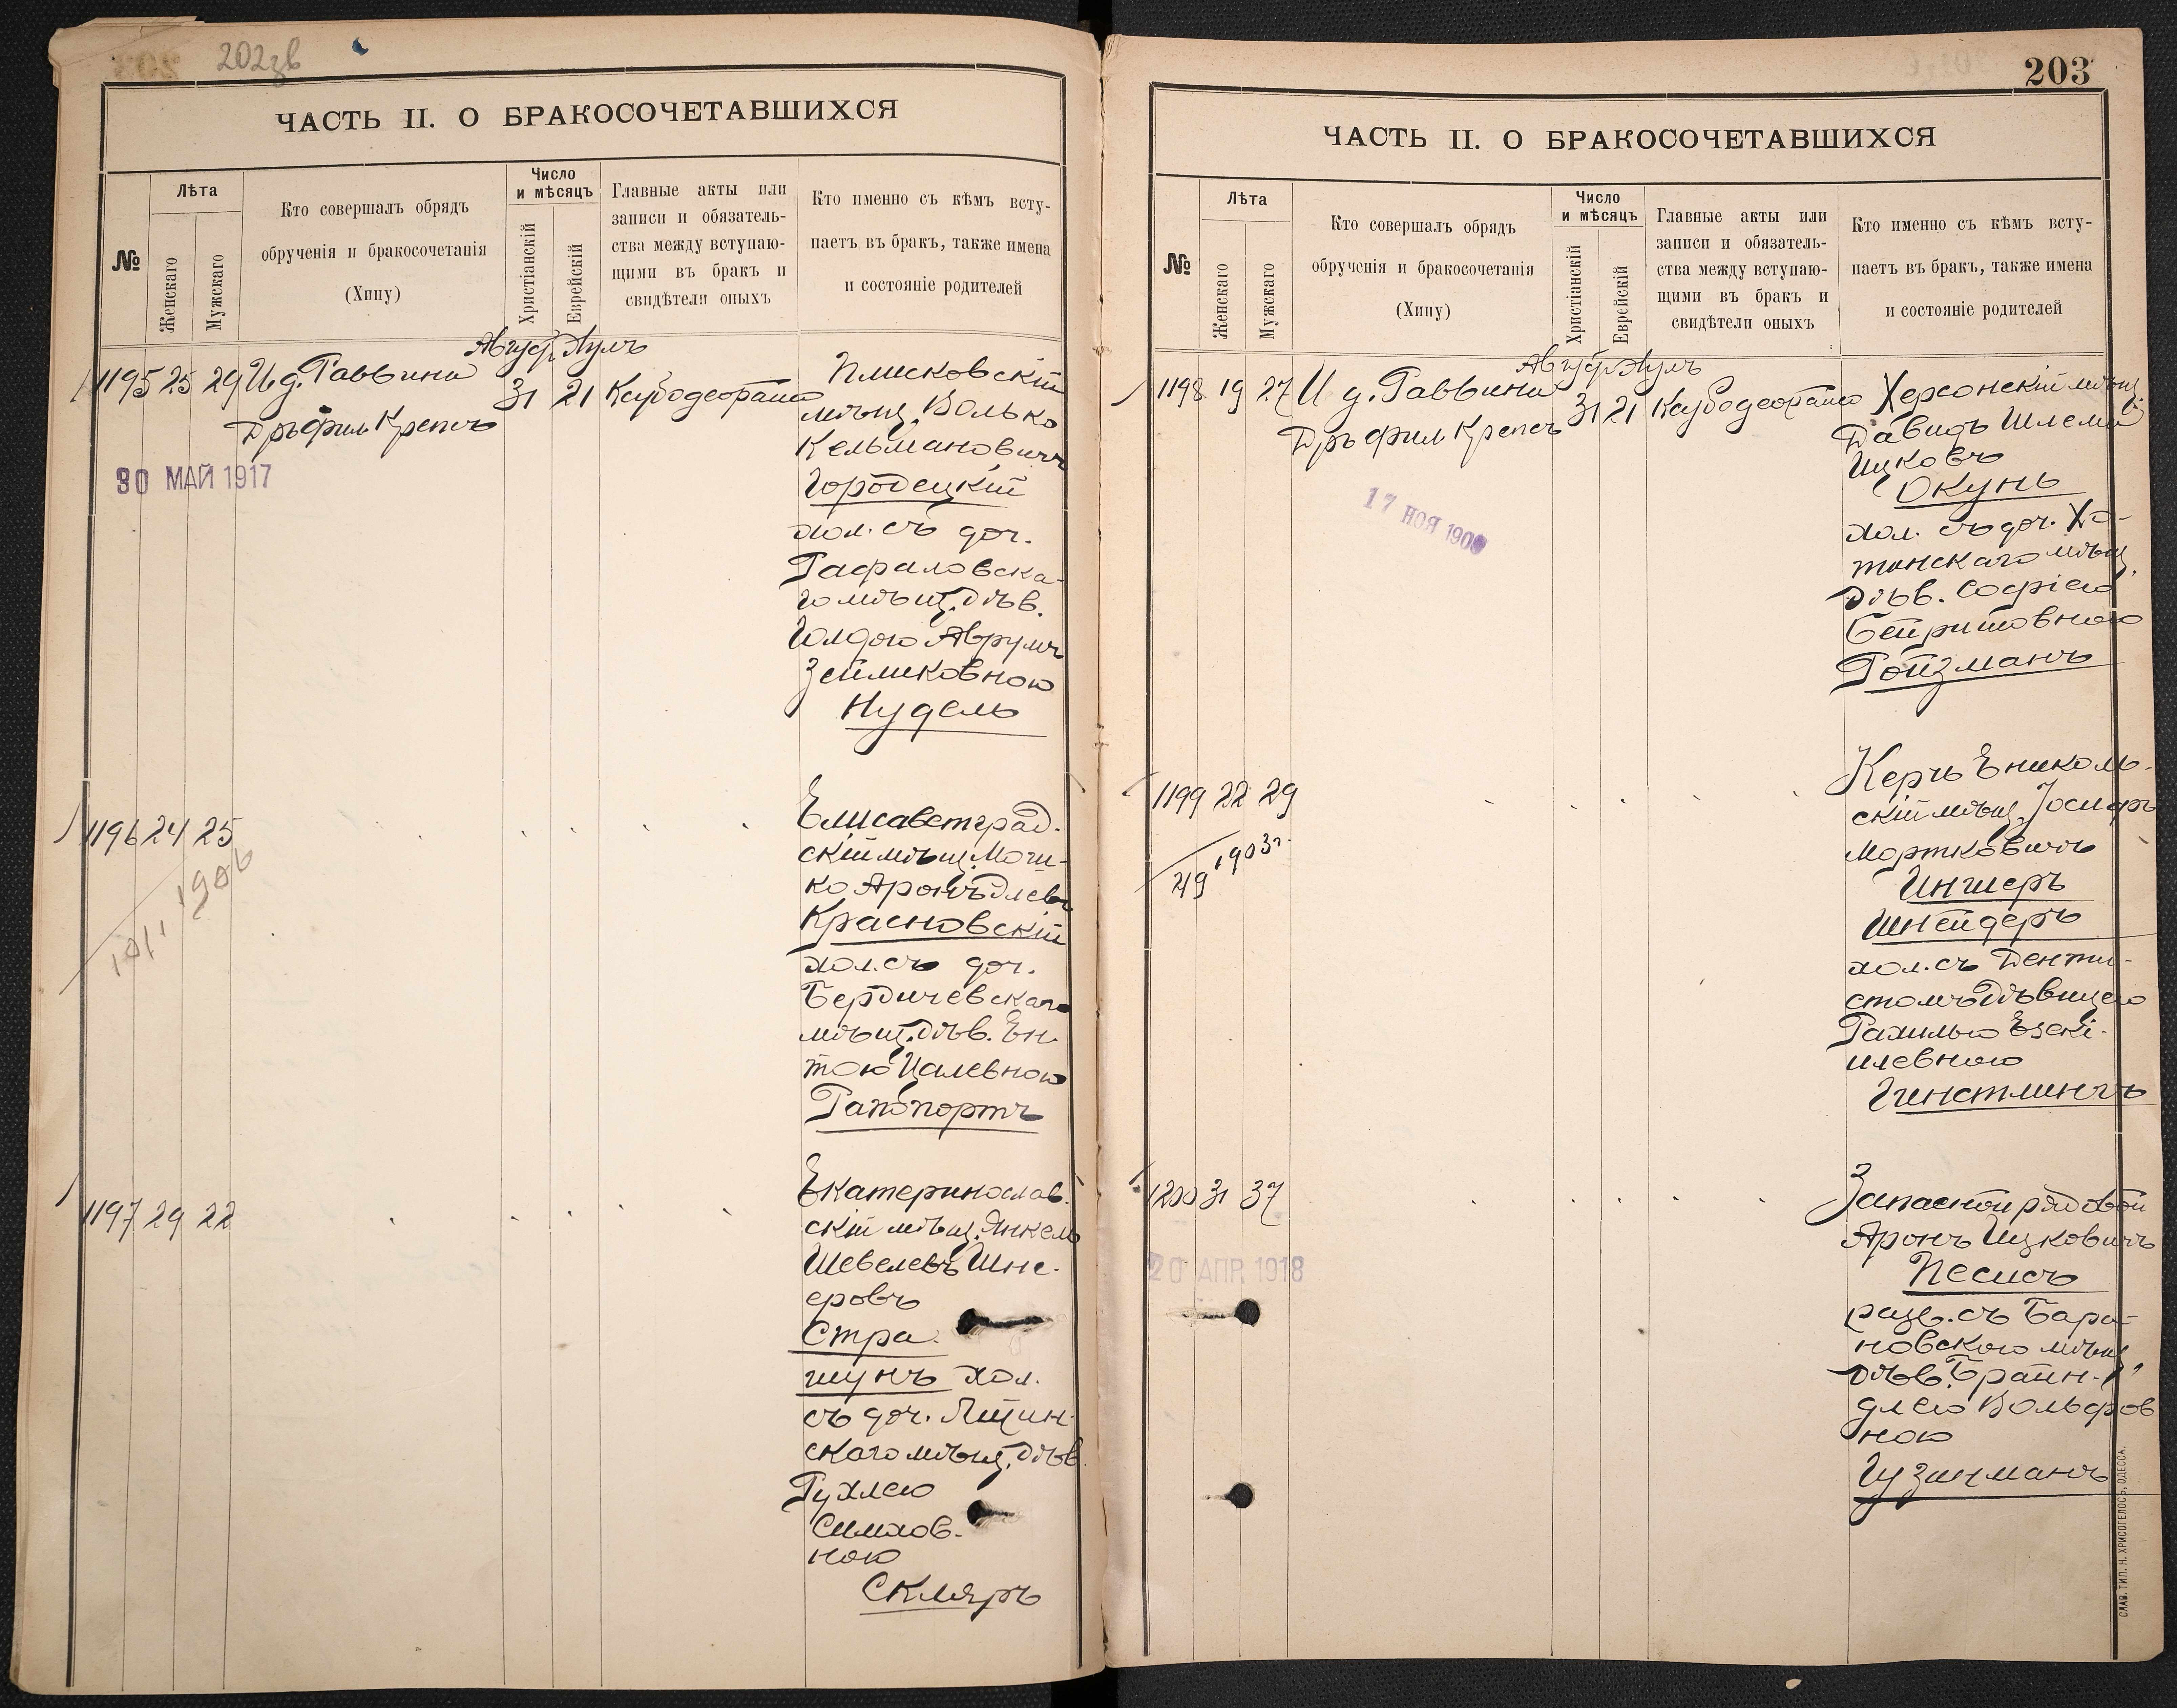 202зв
ЧАСТЬ II. О БРАКОСОЧЕТАВШИХСЯ
№
Лѣта
Женскаго
Мужскаго
Кто совершалъ обрядъ
обрученія и бракосочетанія
(Хипу)
Число
и мѣсяцъ
Христіанскій
Еврейскій
Главные акты или
записи и обязатель-
ства между вступаю-
щими въ бракъ и
свидѣтели оныхъ
Кто именно съ кѣмъ всту-
паетъ въ бракъ, также имена
и состояніе родителей
Август. Аулъ
1195 25 29 И д. Раввина 31 21
Дръ фил Крепсъ
30 МАЙ 1917
Плисковскій
мѣщ. Волько
Кельмановичъ
Городецкій
хол. съ доч.
Рафаловска-
го мѣщ. дѣв.
Голдою Аврумъ
Зейликовною
Нудель
1196 24 25
1906
Елисаветград-
скій мѣщ. Мош-
ко Аронъ
Красновскій
хол. съ доч.
Бердичевскаго
мѣщ. дѣв. Ен-
тою Цалевною
Рапопортъ
1197 29 22
Екатеринослав-
скій мѣщ. Янкель
Шевелевъ Шне-
еровъ
Стра-
шунъ хол.
съ доч.
скаго мѣщ. дѣв.
Рухлею
Симхов-
ною
Скляръ
203
ЧАСТЬ II. О БРАКОСОЧЕТАВШИХСЯ
№
Лѣта
Женскаго
Мужскаго
Кто совершалъ обрядъ
обрученія и бракосочетанія
(Хипу)
Число
и мѣсяцъ
Христіанскій
Еврейскій
Главные акты или
записи и обязатель-
ства между вступаю-
щими въ бракъ и
свидѣтели оныхъ
Кто именно съ кѣмъ всту-
паетъ въ бракъ, также имена
и состояніе родителей
Август. Аулъ
1198 19 27 И д. Раввина 31 21
Дръ фил Крепсъ
17 НОЯ 190
Херсонскій мѣщ.
Давидъ Шлема
Ицковъ
Окунь
хол. съ доч. Хо-
тинскаго мѣщ.
дѣв. Софіею
Бейришовною
Ройзманъ
1199 22 29
1903г.
49
Керчь Ениколь-
скій мѣщ. Іосифъ
Мортковичъ
Ингшеръ
Шнейдеръ
хол. съ Денти-
стомъ Дѣвицею
Рахилью Езекі-
илевною
1200 31 37
20 АПР 1918
Запасной рядовой
Аронъ Ицковичъ
Песисъ
разв. съ Бара-
новского мѣщ.
дѣв. Браин-
длею Вольфов
ною
Гузикманъ
СЛАВ. ТИП. Н. ХРИСОГЕЛОСЪ, ОДЕССА.